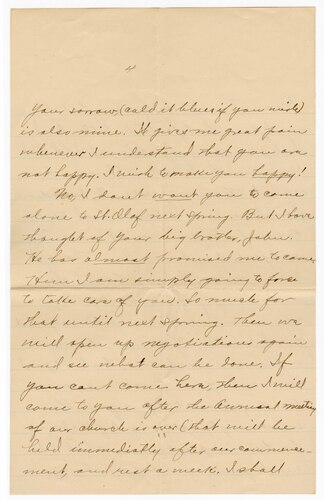 4
Your sorrow, (call it blues if you wish)
is also mine. It gives me great pain
whenever I understand that you are
not happy. I wish to make you happy!
No, I don't want you to come
alone to St Olaf next spring. But I have
thought of your big brother, John.
He has almost promised me to come.
Him I am simply going to force
to take care of you. So much for
that until next spring. Then we
will open up negotiations again
and see what can be done. If
you cant come here, then I will
come to you after the Annual meeting
of our church is over (that will be
held immediatly after our commence-
ment, and rest a week. I shall